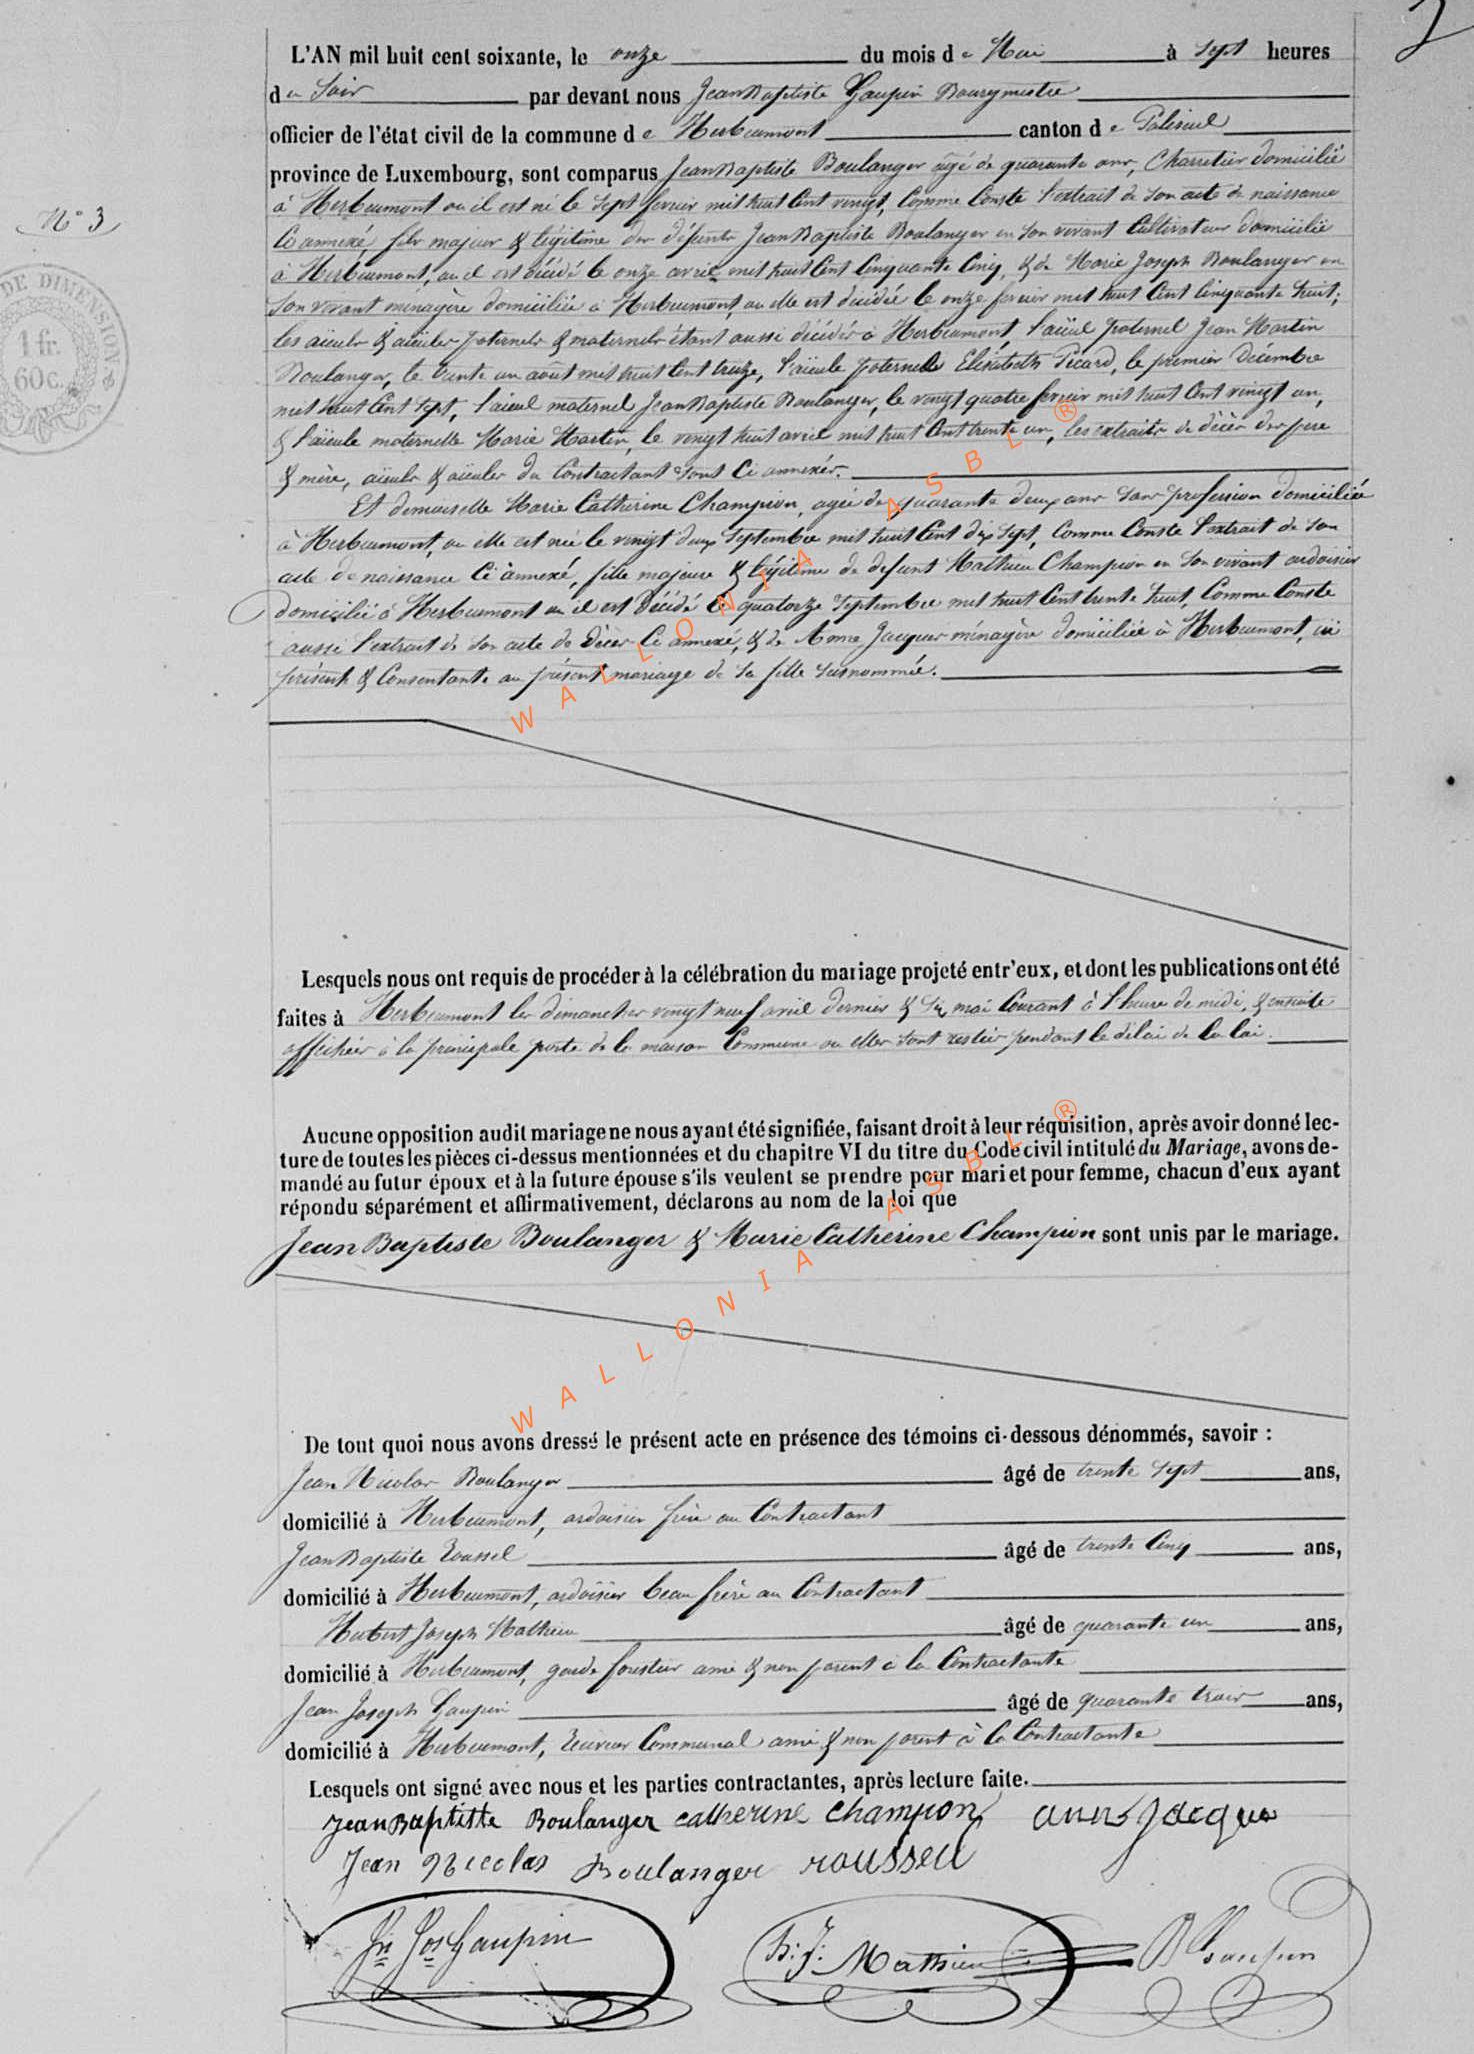 2
L'AN mil huit cent soixante, le onze du mois de Mai à sept heures
du soir par devant nous Jean Baptiste Gaupin Bourgmestre
officier de l'état civil de la commune de Herbeumont canton de Paliseul
province de Luxembourg, sont comparus Jean Baptiste Boulanger âgé de quarante ans, Charretier domicilié
N° 3
à Herbeumont où il est né le sept fevrier mil huit Cent vingt, Comme Conste l'extrait de son acte de naissance
Ci annexé fils majeur & légitime des défunts Jean Baptiste Boulanger en son vivant Cultivateur domicilié
à Herbeumont, où il est décédé le onze avril mil huit Cent Cinquante Cinq, & de Marie Joseph Boulanger en
son vivant ménagère domiciliée à Herbeumont, ou elle est décédée le onze fevrier mil huit Cent Cinquante huit;
les aïeuls & aïeules paternels & maternels étant aussi décédés à Herbeumont, l'aïeul paternel Jean Martin
Boulanger, le trente un août mil huit Cent treize, l'aïeule paternelle Elisabeth Picard, le premier Décembre
mil huit Cent sept, l'aïeul maternel Jean Baptiste Boulanger, le vingt quatre fevrier mil huit Cent vingt un,
& l'aïeule maternelle Marie Martin, le vingt huit avril mil huit Cent trente un, les extraits de décès des pere
& mère, aïeuls & aïeules du Contractant sont Ci annexés.
Et demoiselle Marie Catherine Champion, agée de quarante deux ans sans profession domiciliée
à Herbeumont, ou elle est née le vingt deux septembre mil huit Cent dix sept, Comme Conste l'extrait de son
acte de naissance Ci annexé, fille majeure & légitime de defunt Mathieu Champion en son vivant ardoisier
domicilié à Herbeumont ou il est décédé le quatorze septembre mil huit Cent trente huit, Comme Conste
aussi l'extrait de son acte de décès Ci annexé, & de Anne Jacques ménagère domiciliée à Herbeumont, ici
présente & Consentante au présent mariage de sa fille susnommée.
Lesquels nous ont requis de procéder à la célébration du mariage projeté entr'eux, et dont les publications ont été
faites à Herbeumont les dimanches vingt neuf avril dernier & six mai Courant à l'heure de midi, & ensuite
affichées à la principale porte de la maison Commune ou elles sont restées pendant le délai de la loi.
Aucune opposition audit mariage ne nous ayant été signifiée, faisant droit à leur réquisition, après avoir donné lec-
ture de toutes les pièces ci-dessus mentionnées et du chapitre VI du titre du Code civil intitulé du Mariage, avons de-
mandé au futur époux et à la future épouse s'ils veulent se prendre pour mari et pour femme, chacun d'eux ayant
répondu séparément et affirmativement, déclarons au nom de la loi que
Jean Baptiste Boulanger & Marie Catherine Champion sont unis par le mariage.
De tout quoi nous avons dressé le présent acte en présence des témoins ci-dessous dénommés, savoir :
Jean Nicolas Boulanger âgé de trente sept ans,
domicilié à Herbeumont, ardoisier frère au Contractant
Jean Baptiste Roussel âgé de trente Cinq ans,
domicilié à Herbeumont, ardoisier beau frère au Contractant
Hubert Joseph Mathieu âgé de quarante un ans,
domicilié à Herbeumont, garde forestier ami & non parent à la Contractante
Jean Joseph Gaupin âgé de quarante trois ans,
domicilié à Herbeumont, receveur Communal ami & non parent à la Contractante
Lesquels ont signé avec nous et les parties contractantes, après lecture faite.
Jean Baptiste Boulanger catherine champion anne jacque
Jean Nicolas Boulanger roussel
Jn Jos Gaupin H: J: Mathieu B Gaupin
DE DIMENSION
1 fr.
60 c.
WALLONIA ASBL ®
WALLONIA ASBL ®